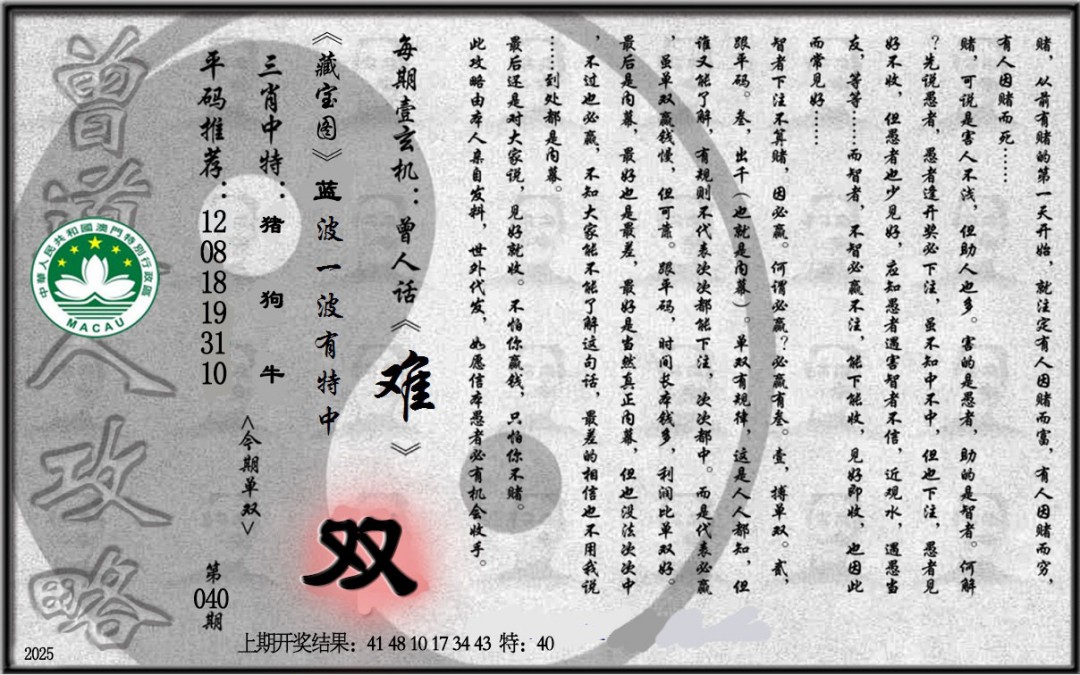 赌，从前有赌的第一天开始，就注定有人因赌而富，有人因赌而穷，
有人因赌而死……
赌，可说是害人不浅，但助人也多。害的是愚者，助的是智者。何解
？先说愚者，愚者逢开奖必下注，虽不知中不中，但也下注，愚者见
好不收，但愚者也少见好，应知愚者遇害智者不信，近观水，遇愚当
友，等等……而智者，不智必赢不注，能下能收，见好即收，也因此
而常见好……
智者下注不算赌，因必赢。何谓必赢？必赢有叁。壹，搏单双。贰，
跟平码。叁，出千（也就是内幕）。单双有规律，这是人人都知，但
谁又能了解，有规则不代表次次都能下注，次次都中。而是代表必赢
，虽单双赢钱慢，但可靠。跟平码，时间长本钱多，利润比单双好。
最后是内幕，最好也是最差，最好是当然真正内幕，但也没法次次中
，不过也必赢，不知大家能不能了解这句话，最差的相信也不用我说
……到处都是内幕。
最后还是对大家说，见好就收。不怕你赢钱，只怕你不赌。
此攻略由本人亲自发料，世外代发，如愿信本愚者必有机会收手。
每期壹玄机：曾人话《难》
《藏宝图》蓝波一波有特中
双
三肖中特：猪 狗 牛
<今期单双>
平码推荐：12 08 18 19 31 10
第040期
曾道人攻略
中華人民共和國澳門特別行政區
MACAU
上期开奖结果：41 48 10 17 34 43 特：40
2025